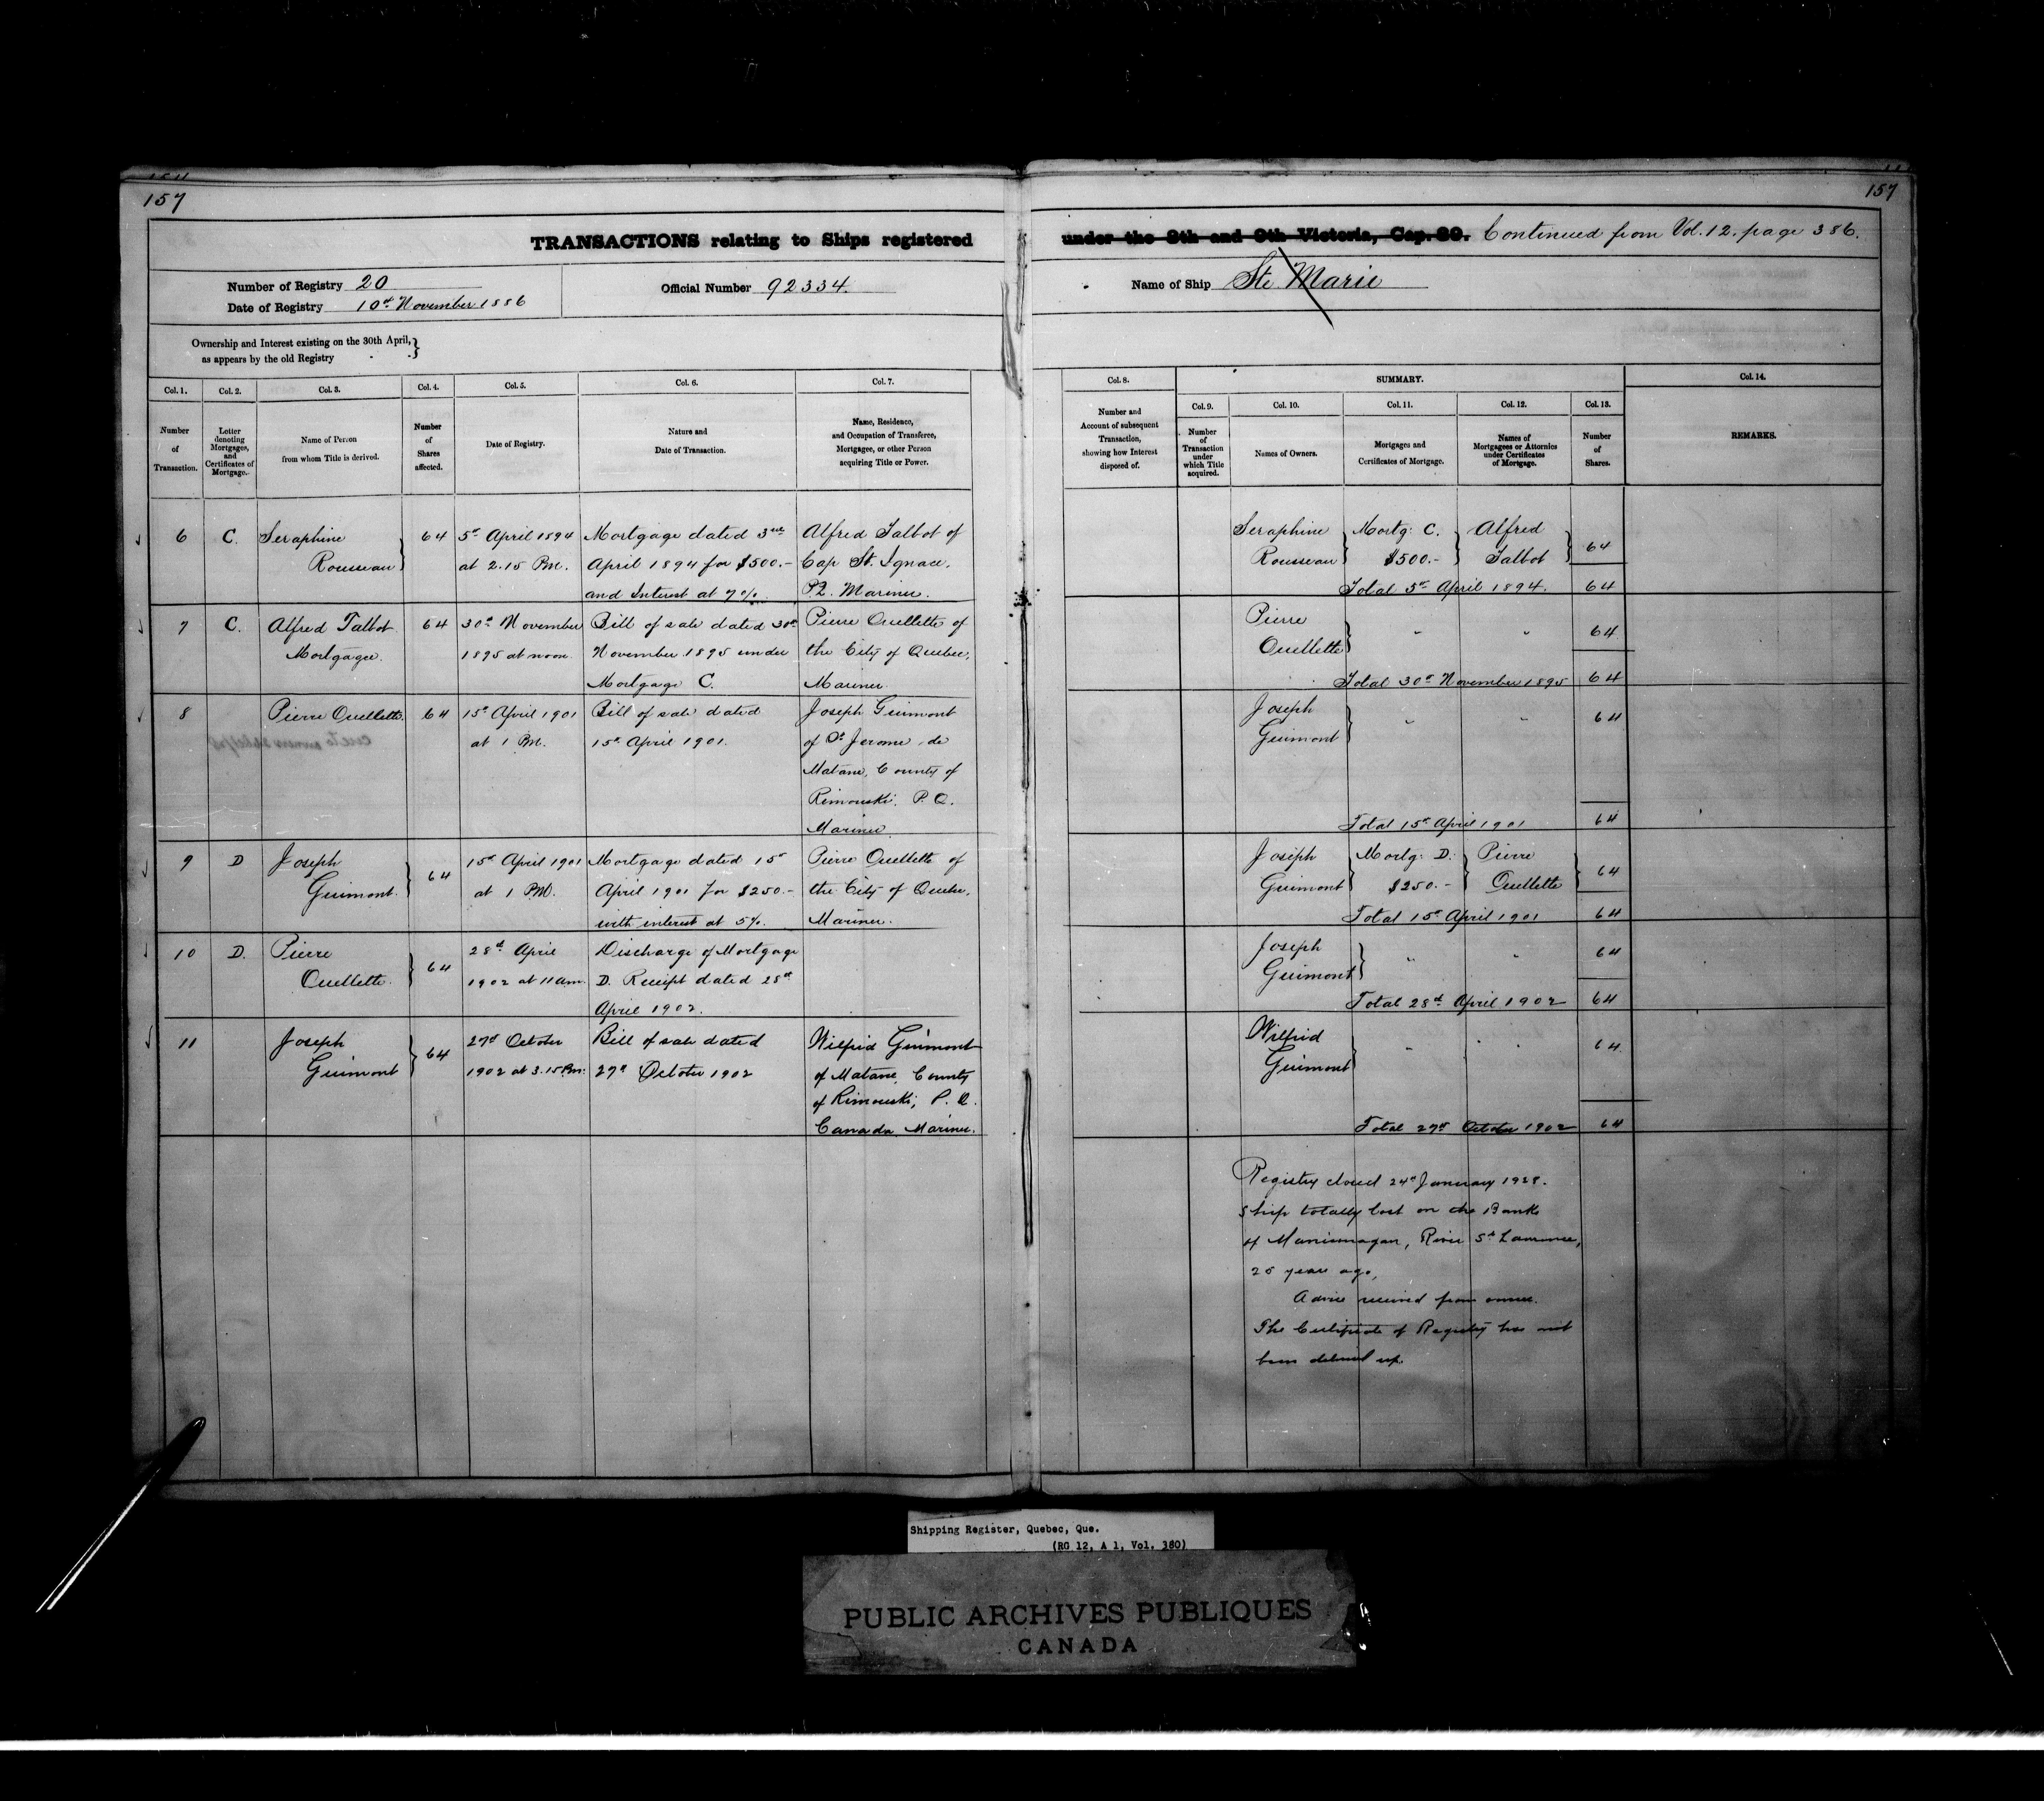 157
157
TRANSACTIONS relating to Ships registered
under the 8th and 9th Victoria, Cap. 89. Continued from Vol. 12. page 386.
Number of Registry 20
Date of Registry 10th November 1886
Official Number 92334.
Name of Ship Ste Marie
Ownership and Interest existing on the 30th April,
as appears by the old Registry
Col. 1.
Number
of
Transaction.
Col. 2.
Letter
denoting
Mortgages,
and
Certificates of
Mortgage.
Col. 3.
Name of Person
from whom Title is derived.
Col. 4.
Number
of
Shares
affected.
Col. 5.
Date of Registry.
Col. 6.
Nature and
Date of Transaction.
Col. 7.
Name, Residence,
and Occupation of Transferee,
Mortgagee, or other Person
acquiring Title or Power.
Col. 8.
Number and
Account of subsequent
Transaction,
showing how Interest
disposed of.
SUMMARY.
Col. 9.
Number
of
Transaction
under
which Title
acquired.
Col. 10.
Names of Owners.
Col. 11.
Mortgages and
Certificates of Mortgage.
Col. 12.
Names of
Mortgagees or Attornies
under Certificates
of Mortgage.
Col. 13.
Number
of
Shares.
Col. 14.
REMARKS.
6 C. Seraphine 64 5th April 1894 Mortgage dated 3rd Alfred Talbot of
Rousseau at 2.15 P.M. April 1894 for $500.- Cap St. Ignace.
and Interest at 7%. P.Q. Mariner.
Seraphine Mortg: C. Alfred
Rousseau $500.- Talbot 64
Total 5th April 1894. 64
7 C. Alfred Talbot 64 30th November Bill of sale dated 30th Pierre Ouellette of
Mortgagee. 1895 at noon. November 1895 under the City of Quebec,
Mortgage C. Mariner.
Pierre
Ouellette " " 64
Total 30th November 1895 64
8 Pierre Ouellette 64 15th April 1901 Bill of sale dated Joseph Guimont
at 1 P.M. 15th April 1901. of St Jerome de
Matane, County of
Rimouski. P.Q.
Mariner
Joseph
Guimont " " 64
Total 15th April 1901 64
9 D Joseph 64 15th April 1901 Mortgage dated 15th Pierre Ouellette of
Guimont. at 1 P.M. April 1901 for $250.- the City of Quebec,
with interest at 5%. Mariner.
Joseph Mortg: D. Pierre
Guimont $250.- Ouellette 64
Total 15th April 1901 64
10 D. Pierre 64 28th April Discharge of Mortgage
Ouellette. 1902 at 11 am. D. Receipt dated 28th
April 1902.
Joseph
Guimont " " 64
Total 28th April 1902 64
11 Joseph 64 27th October Bill of sale dated Wilfrid Guimont
Guimont 1902 at 3.15 P.m. 27th October 1902 of Matane, County
of Rimouski, P.Q.
Canada. Mariner.
Wilfrid
Guimont " " 64
Total 27th October 1902 64
Registry closed 24th January 1928.
Ship totally lost on the Banks
of Manicouagan, River St Lawrence,
25 years ago,
Advice received from owner.
The Certificate of Registry has not
been delivered up.
Shipping Register, Quebec, Que.
(RG 12, A 1, Vol. 380)
PUBLIC ARCHIVES PUBLIQUES
CANADA